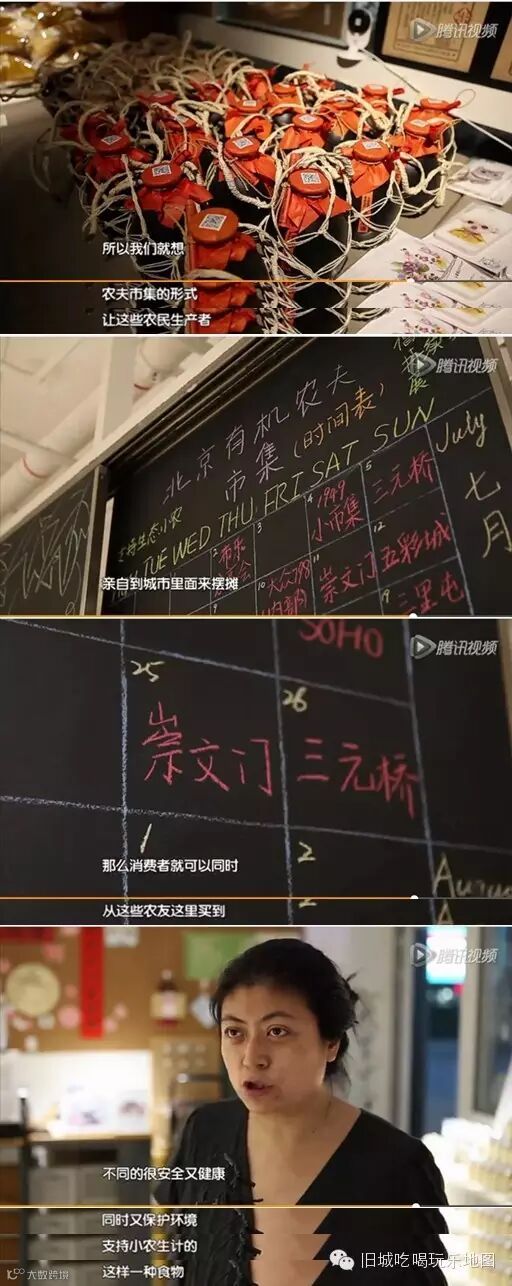 腾讯视频
所以我们就想
农夫市集的形式
让这些农民生产者
腾讯视频
北京有机农夫
市集(时间表)
支持生态小农
TUE WED THU FRI SAT SUN
July
七月
2
3
4
1949
小市集
5
三元桥
9
10
11
崇文门
12
五彩城
19
三里屯
亲自到城市里面来摆摊
腾讯视频
SOHO
25
崇文门
26
三元桥
1
2
那么消费者就可以同时
从这些农友这里买到
腾讯视频
不同的很安全又健康
同时又保护环境
支持小农生计的
这样一种食物
大数跨境
旧城吃喝玩乐地图